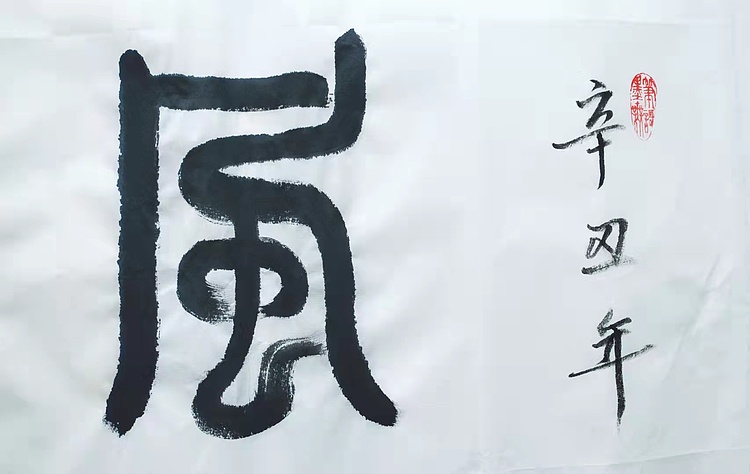 辛丑年
風